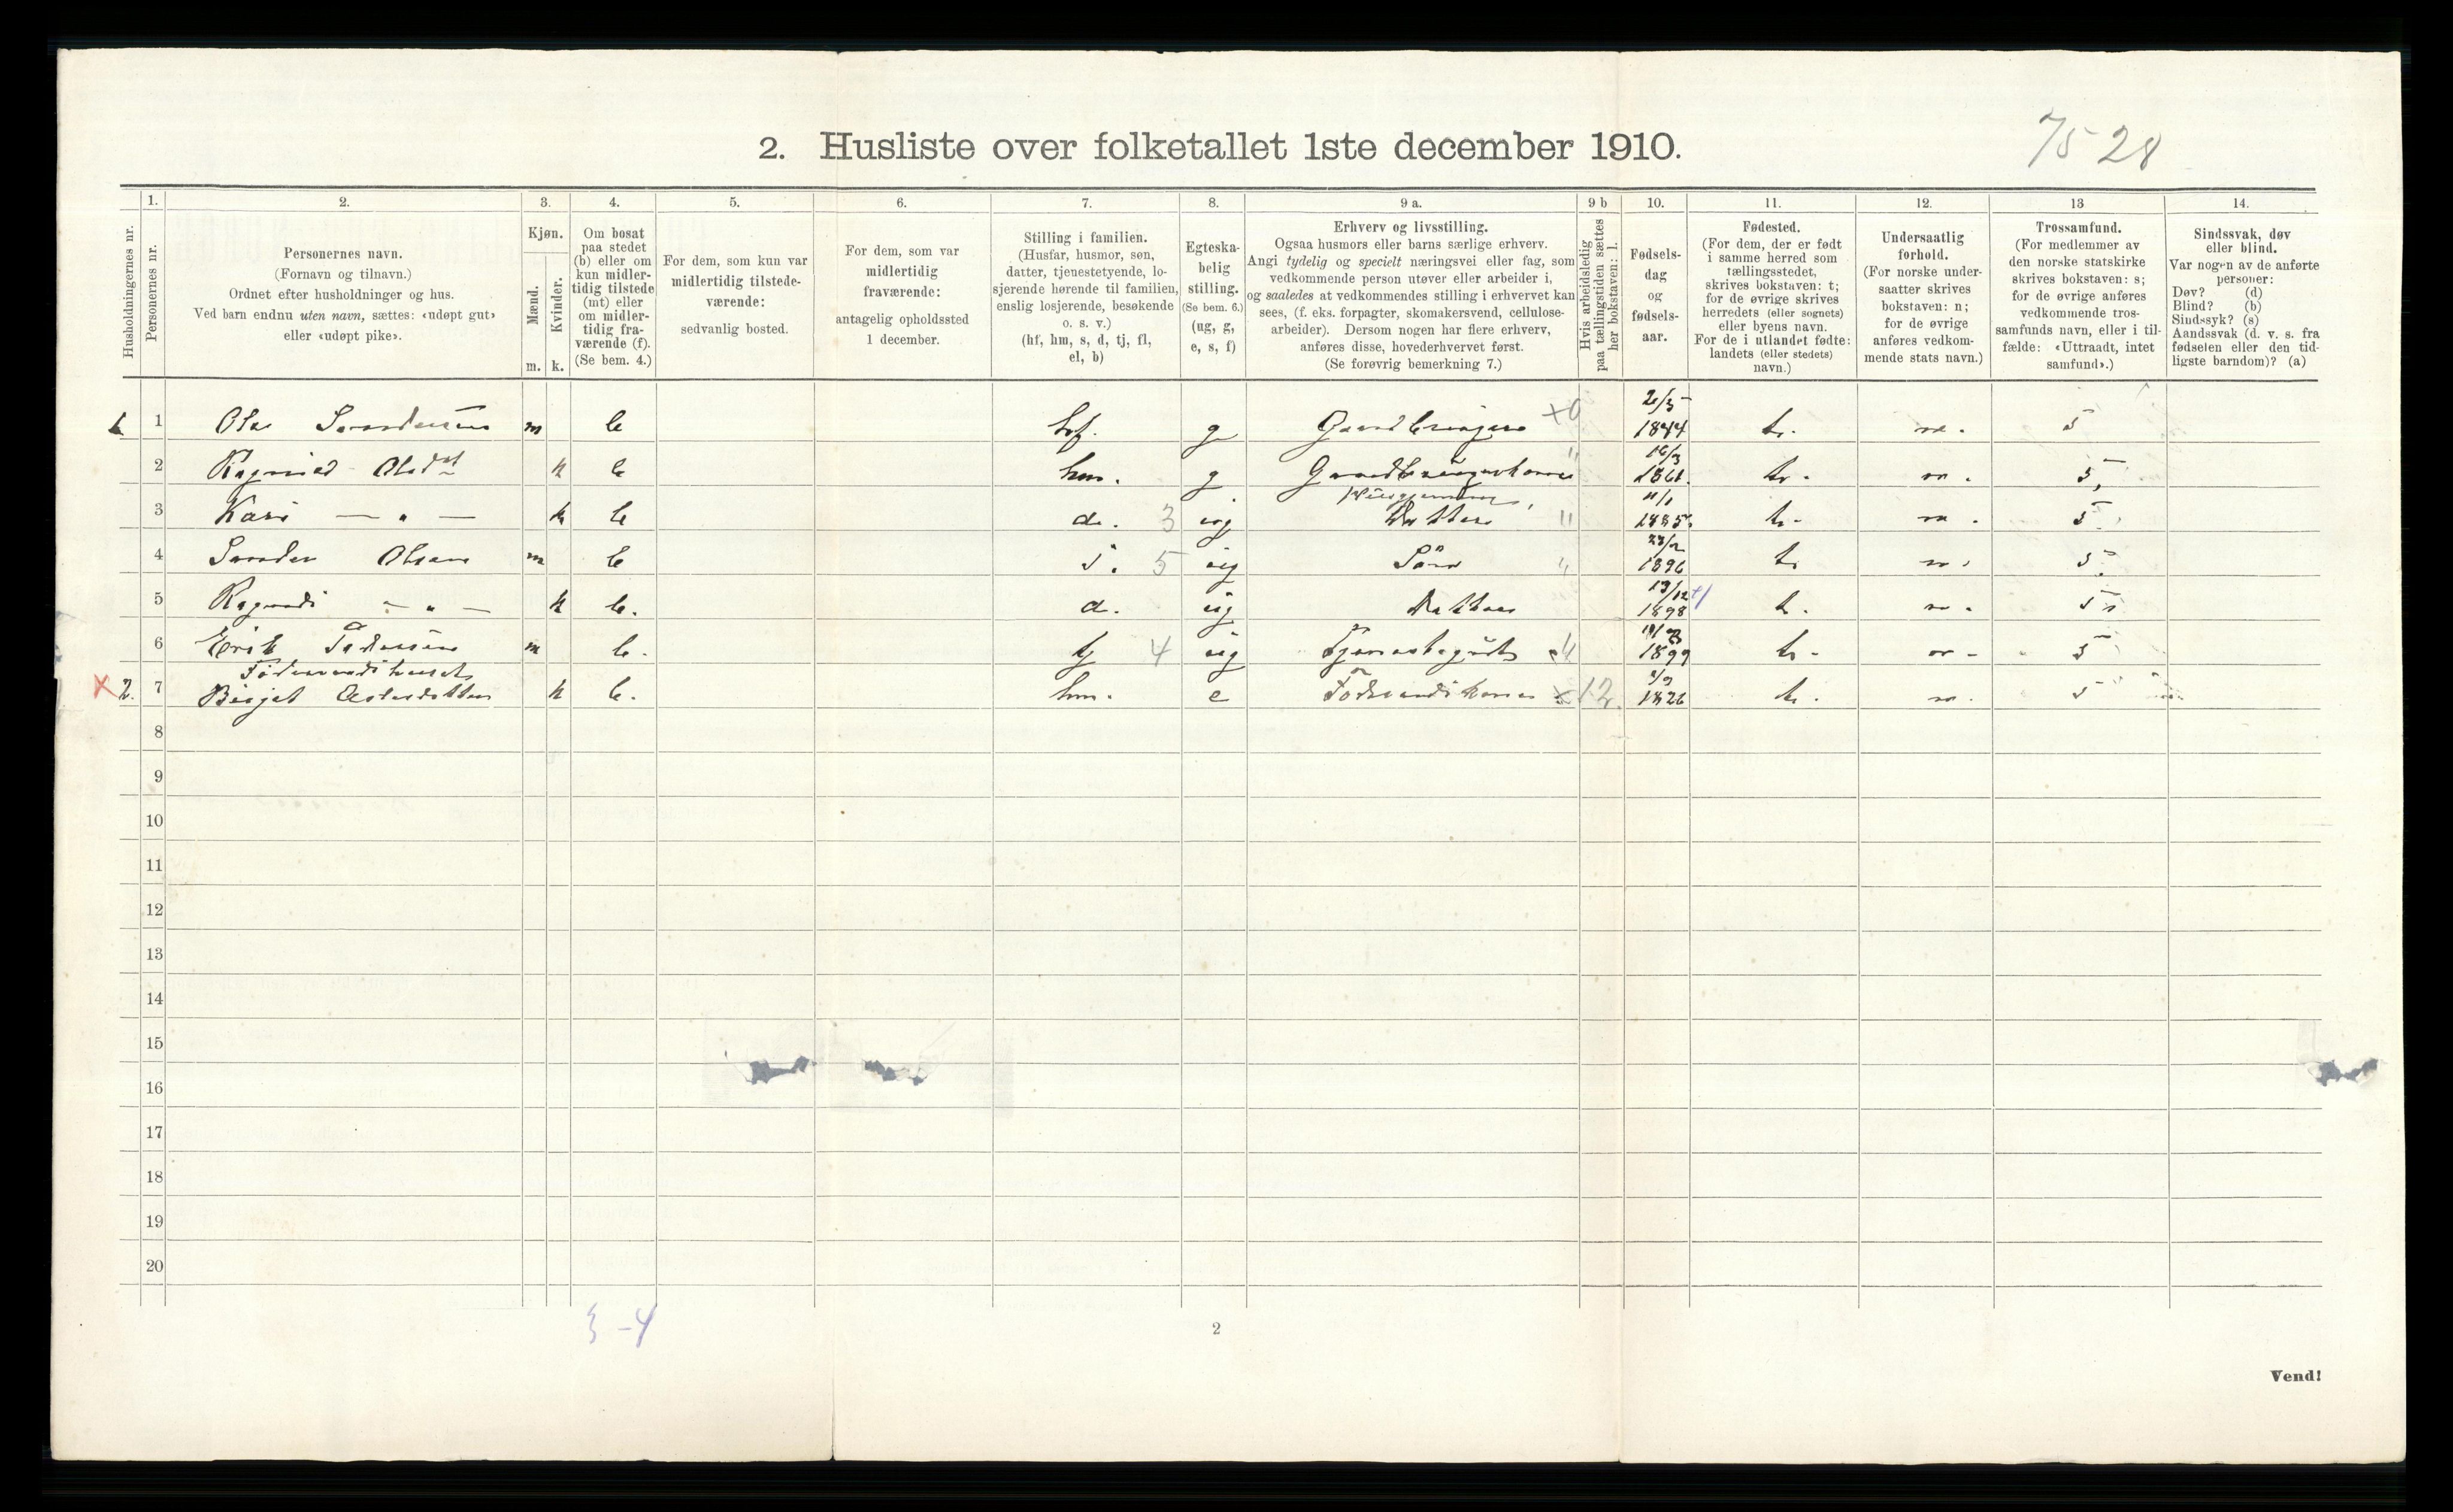 2. Husliste over folketallet 1ste december 1910.
75 28
Husholdningernes nr.
1.
Personernes nr.
2.
Personernes navn.
(Fornavn og tilnavn.)
Ordnet efter husholdninger og hus.
Ved barn endnu uten navn, sættes: «udøpt gut»
eller «udøpt pike».
3.
Kjøn.
Mænd.
Kvinder.
m. k.
4.
Om bosat
paa stedet
(b) eller om
kun midler-
tidig tilstede
(mt) eller
om midler-
tidig fra-
værende (f).
(Se bem. 4.)
5.
For dem, som kun var
midlertidig tilstede-
værende:
sedvanlig bosted.
6.
For dem, som var
midlertidig
fraværende:
antagelig opholdssted
1 december.
7.
Stilling i familien.
(Husfar, husmor, søn,
datter, tjenestetyende, lo-
sjerende hørende til familien,
enslig losjerende, besøkende
o. s. v.)
(hf, hm, s, d, tj, fl,
el, b)
8.
Egteska-
belig
stilling.
(Se bem. 6.)
(ug, g,
e, s, f)
9 a.
Erhverv og livsstilling.
Ogsaa husmors eller barns særlige erhverv.
Angi tydelig og specielt næringsvei eller fag, som
vedkommende person utøver eller arbeider i,
og saaledes at vedkommendes stilling i erhvervet kan
sees, (f. eks. forpagter, skomakersvend, cellulose-
arbeider). Dersom nogen har flere erhverv,
anføres disse, hovederhvervet først.
(Se forøvrig bemerkning 7.)
9 b
Hvis arbeidsledig
paa tællingstiden sættes
her bokstaven: l.
10.
Fødsels-
dag
og
fødsels-
aar.
11.
Fødested.
(For dem, der er født
i samme herred som
tællingsstedet,
skrives bokstaven: t;
for de øvrige skrives
herredets (eller sognets)
eller byens navn.
For de i utlandet fødte:
landets (eller stedets)
navn.)
12.
Undersaatlig
forhold.
(For norske under-
saatter skrives
bokstaven: n;
for de øvrige
anføres vedkom-
mende stats navn.)
13
Trossamfund.
(For medlemmer av
den norske statskirke
skrives bokstaven: s;
for de øvrige anføres
vedkommende tros-
samfunds navn, eller i til-
fælde: «Uttraadt, intet
samfund».)
14.
Sindssvak, døv
eller blind.
Var nogen av de anførte
personer:
Døv? (d)
Blind? (b)
Sindssyk? (s)
Aandssvak (d. v. s. fra
fødselen eller den tid-
ligste barndom)? (a)
1 1 Ola Sanderssen m b hf. g Gaardbruger x0 1844 t. n. s
2 Ragnild Olsdat k b hm. g Gaardbrugerkone " 16/3 1861. t. n. s,
3 Kari — " — k b d. 3 ug Datter " 11/1 1885. t. n. s
4 Sander Olsen m b s. 5 ug Søn " 23/2 1896 t n. s.
5 — " — k b. d. ug Datter 13/12 1898 t. n. s
6 Erik m b. tj 4 ug Tjenestegut 1899 t. n. s
Føderaadshuset
x 2. 7 Birjit k b. hm. e Føderaadskone x12. 1826 t. n. s
8
9
10
11
12
13
14
15
16
17
18
19
20
3 - 4
2
Vend!